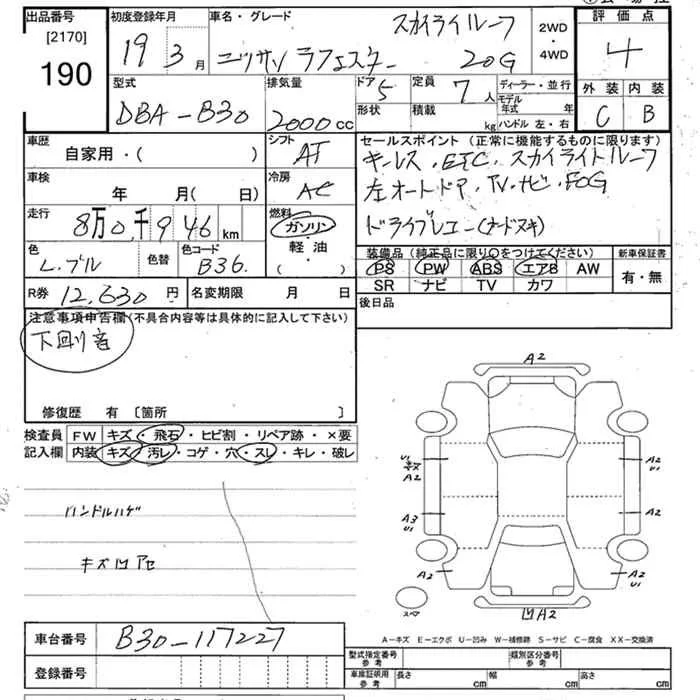 出品番号 初度登録年月 車名・グレード スカイライルーフ 2WD・4WD 評価点
[2170] 190 19 3月 ニッサン ラフェスター 20G 4
型式 DBA-B30 排気量 2000cc ドア 5 定員 7人 ディーラー・並行 外装 C 内装 B
形状 積載 kg モデル年式 年 ハンドル 左・右
車歴 自家用・( ) シフト AT セールスポイント (正常に機能するものに限ります)
キーレス・ETC・スカイライトルーフ
車検 年 月(日) 冷房 AC 左オートドア・TV・ナビ・FOG
走行 8万0千946km 燃料 ガソリン・軽油・( ) ドライブレコー(カードヌキ)
色 L.ブル 色替 色コード B36. 装備品 (純正品に限り○をつけてください) 新車保証書
PS PW ABS エアB AW 有・無
SR ナビ TV カワ
R券 12,630円 名変期限 月 日 後日品
注意事項申告欄(不具合内容等は具体的に記入して下さい)
下回り音
修復歴 有 〔箇所 〕
検査員 FW キズ・飛石・ヒビ割・リペア跡・×要
記入欄 内装 キズ・汚レ・コゲ・穴・スレ・キレ・破レ
ハンドルハゲ
キズ凹アセ
A2
U1 A2 A2 U1
A3 U1 A2
A2 A2 U1
スペア 凹A2
A-キズ E-エクボ U-凹み W-補修跡 S-サビ C-腐食 XX-交換済
車台番号 B30-117227
登録番号
型式指定番号 参考 類別区分番号 参考
車庫証明用 参考 長さ cm 幅 cm 高さ cm